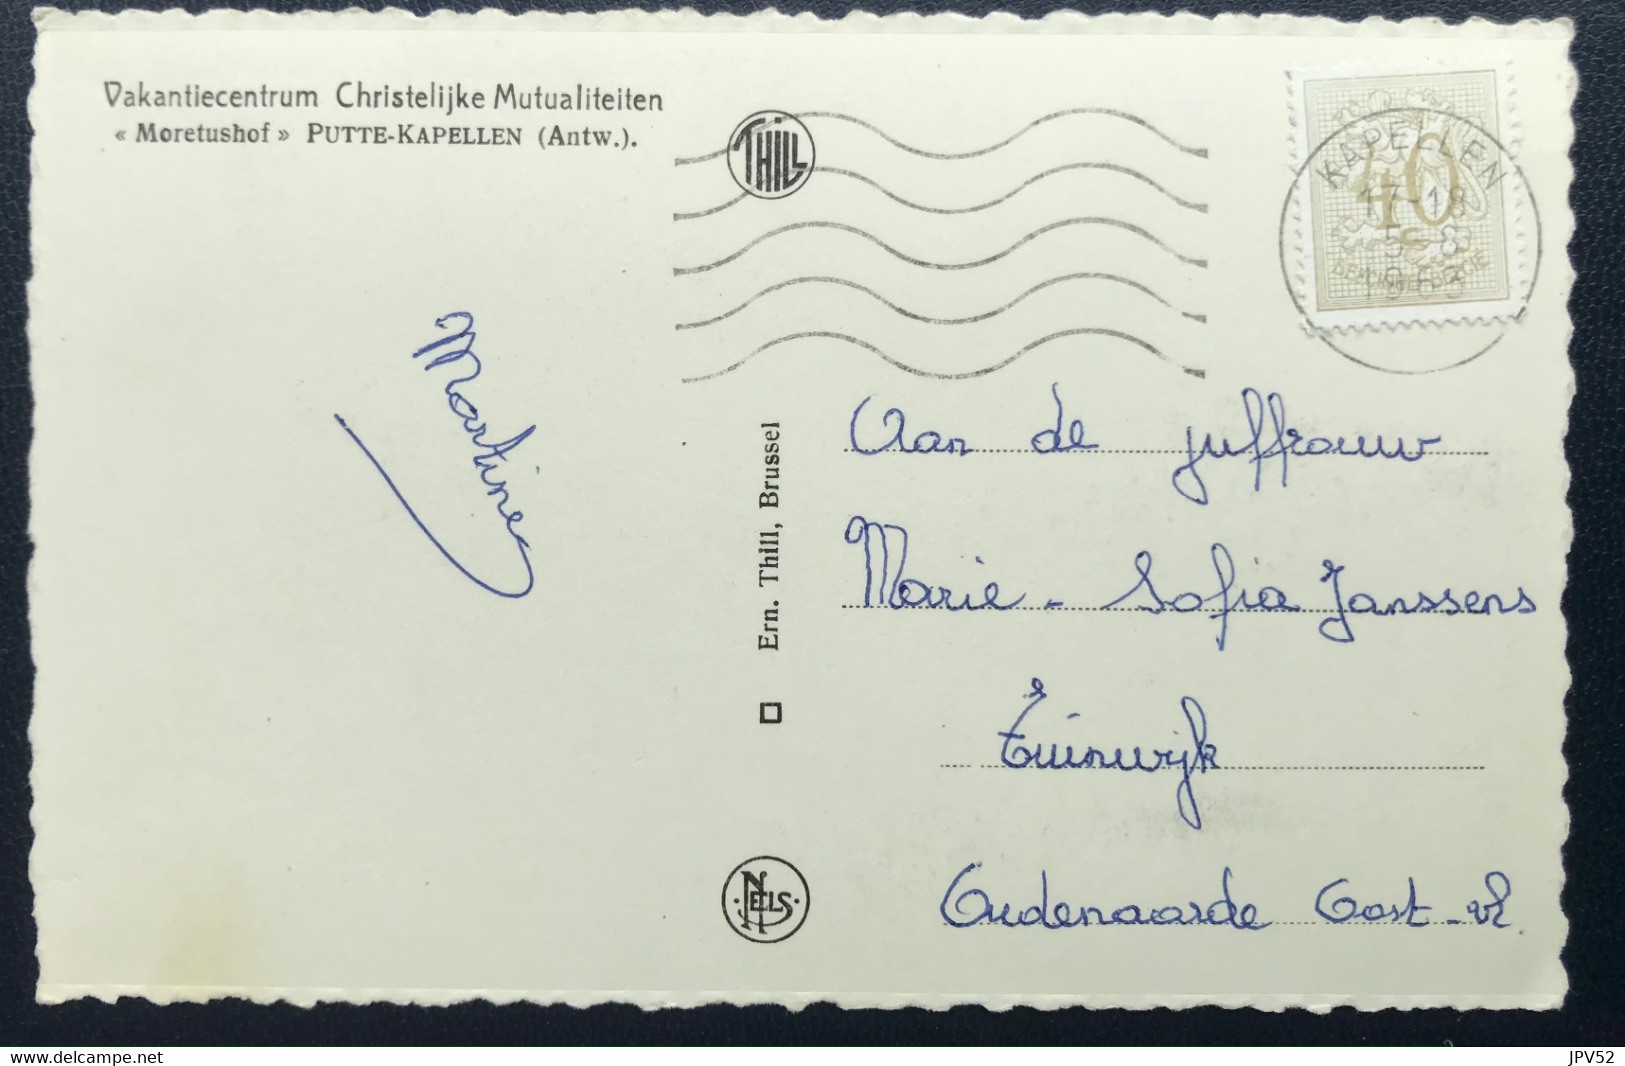 Vakantiecentrum Christelijke Mutualiteiten
« Moretushof » PUTTE-KAPELLEN (Antw.).
THILL
KAPELLEN
17-18
5 - 8
40c
BELGIQUE-BELGIE
Martine
Ern. Thill, Brussel
NELS
Aan de juffrouw
Marie - Sofia Janssens
Tuinwijk
Oudenaarde Oost-vl.
delcampe.net
JPV52